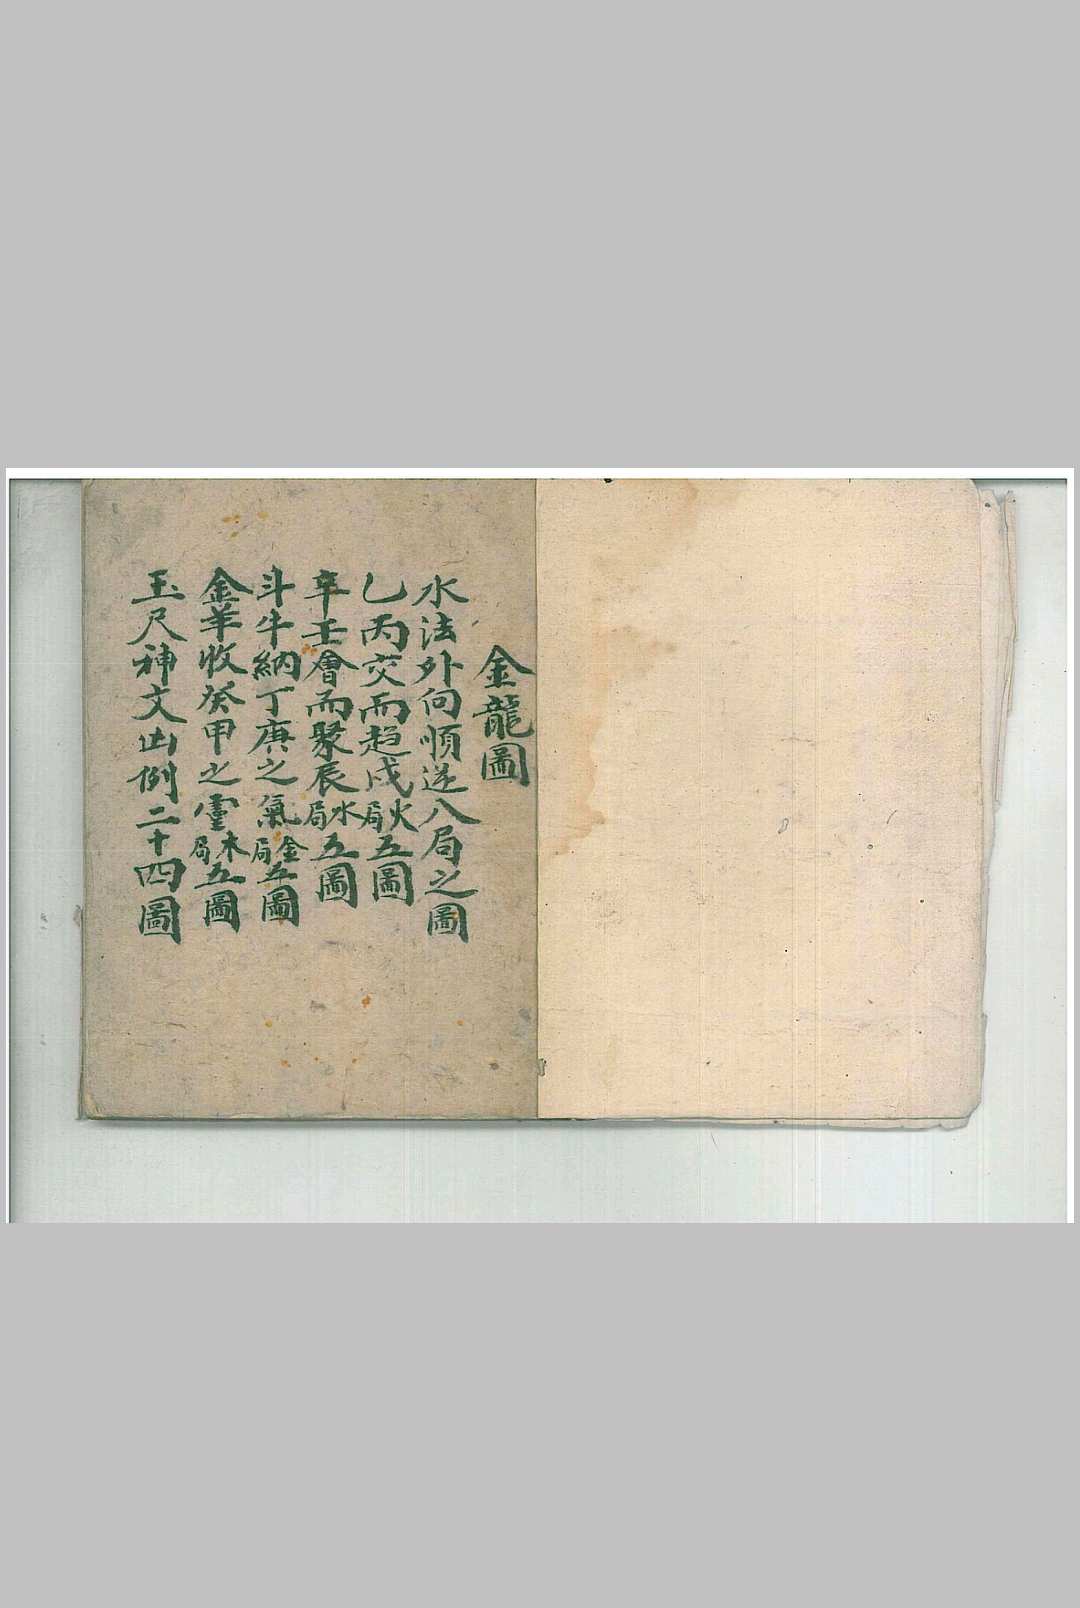 金龍圖
水法外向順逆八局之圖
乙丙交而趋戍火局五圖
辛壬會而聚辰水局五圖
斗牛納丁庚之氣金局五圖
金羊收癸甲之靈木局五圖
玉尺神文凶例二十四圖